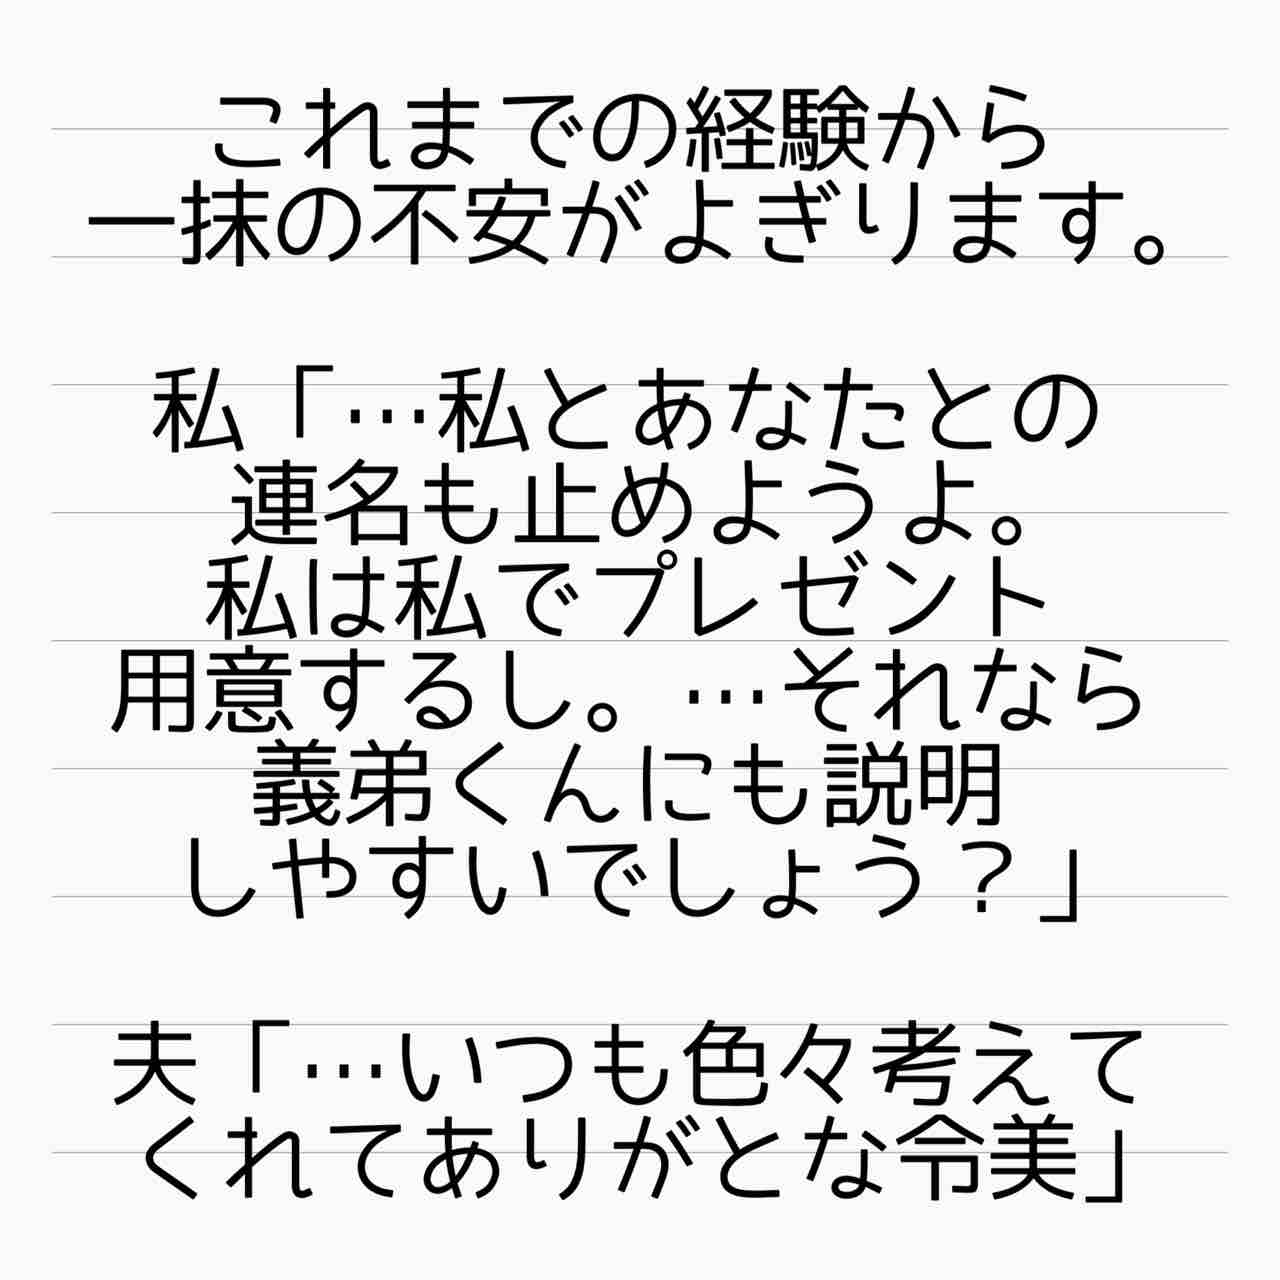 これまでの経験から
一抹の不安がよぎります。
私「…私とあなたとの
連名も止めようよ。
私は私でプレゼント
用意するし。…それなら
義弟くんにも説明
しやすいでしょう？」
夫「…いつも色々考えて
くれてありがとな令美」